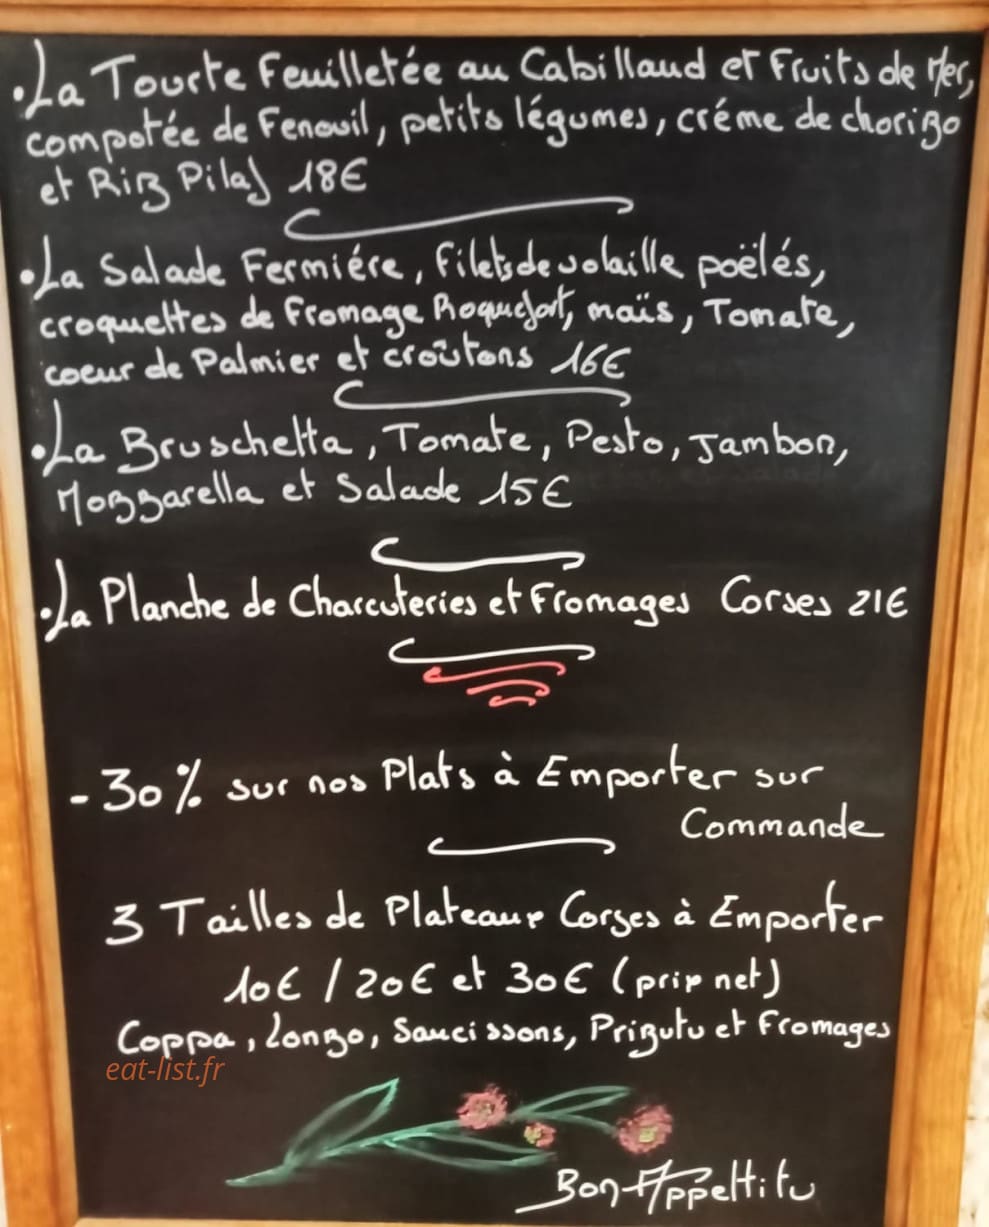 • La Tourte Feuilletée au Cabillaud et Fruits de Mer,
compotée de Fenouil, petits légumes, créme de chorizo
et Riz Pilaf 18€
• La Salade Fermiére, Filets de volaille poëlés,
croquettes de Fromage Roquefort, maïs, Tomate,
coeur de Palmier et croûtons 16€
• La Bruschetta, Tomate, Pesto, Jambon,
Mozzarella et Salade 15€
• La Planche de Charcuteries et Fromages Corses 21€
- 30% sur nos Plats à Emporter sur
Commande
3 Tailles de Plateaux Corses à Emporter
10€ / 20€ et 30€ (prix net)
Coppa, Lonzo, Saucissons, Prizutu et Fromages
eat-list.fr
Bon Appettitu